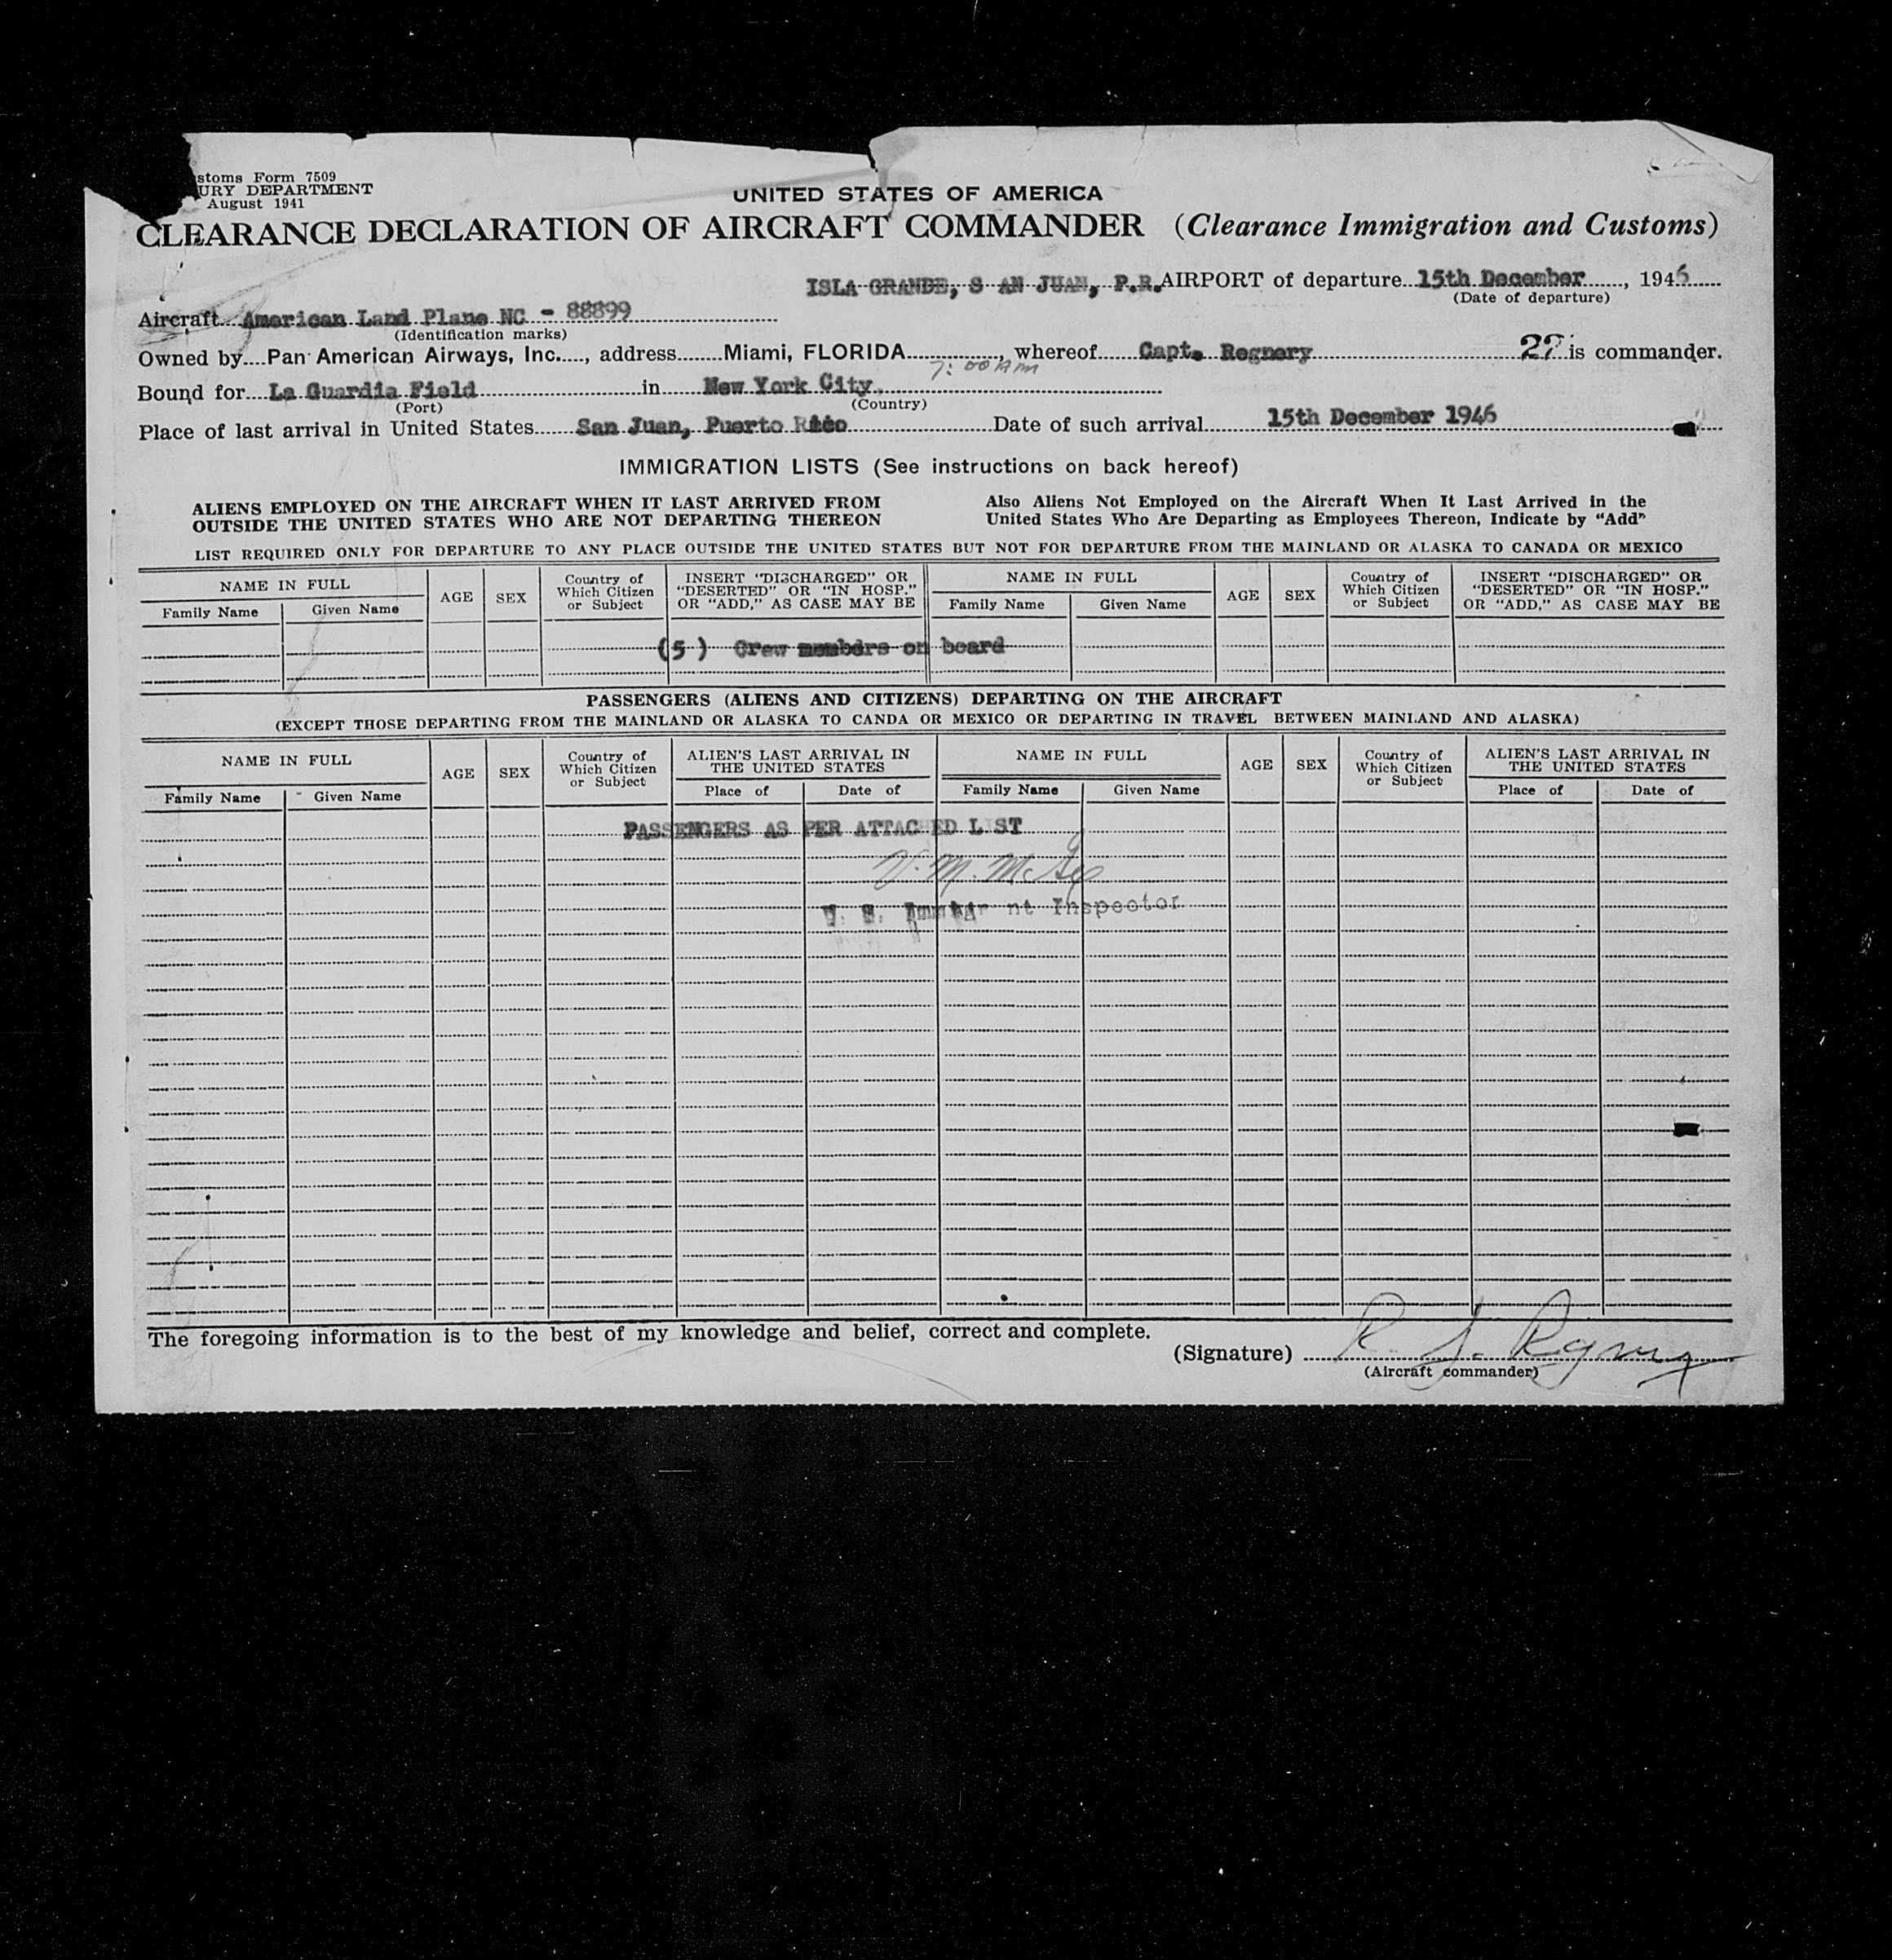 stoms Form 7509
URY DEPARTMENT
August 1941
UNITED STATES OF AMERICA
CLEARANCE DECLARATION OF AIRCRAFT COMMANDER (Clearance Immigration and Customs)
ISLA GRANDE, S AN JUAN, P.R. AIRPORT of departure 15th December, 1946
(Date of departure)
Aircraft American Land Plane NC - 88899
(Identification marks)
Owned by Pan American Airways, Inc., address Miami, FLORIDA, whereof Capt. Regnery 27 is commander.
7:00 AM
Bound for La Guardia Field in New York City
(Port) (Country)
Place of last arrival in United States San Juan, Puerto Rico Date of such arrival 15th December 1946
IMMIGRATION LISTS (See instructions on back hereof)
ALIENS EMPLOYED ON THE AIRCRAFT WHEN IT LAST ARRIVED FROM
OUTSIDE THE UNITED STATES WHO ARE NOT DEPARTING THEREON
Also Aliens Not Employed on the Aircraft When It Last Arrived in the
United States Who Are Departing as Employees Thereon, Indicate by “Add”
LIST REQUIRED ONLY FOR DEPARTURE TO ANY PLACE OUTSIDE THE UNITED STATES BUT NOT FOR DEPARTURE FROM THE MAINLAND OR ALASKA TO CANADA OR MEXICO
NAME IN FULL AGE SEX Country of Which Citizen or Subject INSERT “DISCHARGED” OR “DESERTED” OR “IN HOSP.” OR “ADD,” AS CASE MAY BE NAME IN FULL AGE SEX Country of Which Citizen or Subject INSERT “DISCHARGED” OR “DESERTED” OR “IN HOSP.” OR “ADD,” AS CASE MAY BE
Family Name Given Name Family Name Given Name
(5) Crew members on board
PASSENGERS (ALIENS AND CITIZENS) DEPARTING ON THE AIRCRAFT
(EXCEPT THOSE DEPARTING FROM THE MAINLAND OR ALASKA TO CANDA OR MEXICO OR DEPARTING IN TRAVEL BETWEEN MAINLAND AND ALASKA)
NAME IN FULL AGE SEX Country of Which Citizen or Subject ALIEN'S LAST ARRIVAL IN THE UNITED STATES NAME IN FULL AGE SEX Country of Which Citizen or Subject ALIEN'S LAST ARRIVAL IN THE UNITED STATES
Family Name Given Name Place of Date of Family Name Given Name Place of Date of
PASSENGERS AS PER ATTACHED LIST
V. M.
U. S. nt Inspector
The foregoing information is to the best of my knowledge and belief, correct and complete.
(Signature) R. J. Regnery
(Aircraft commander)